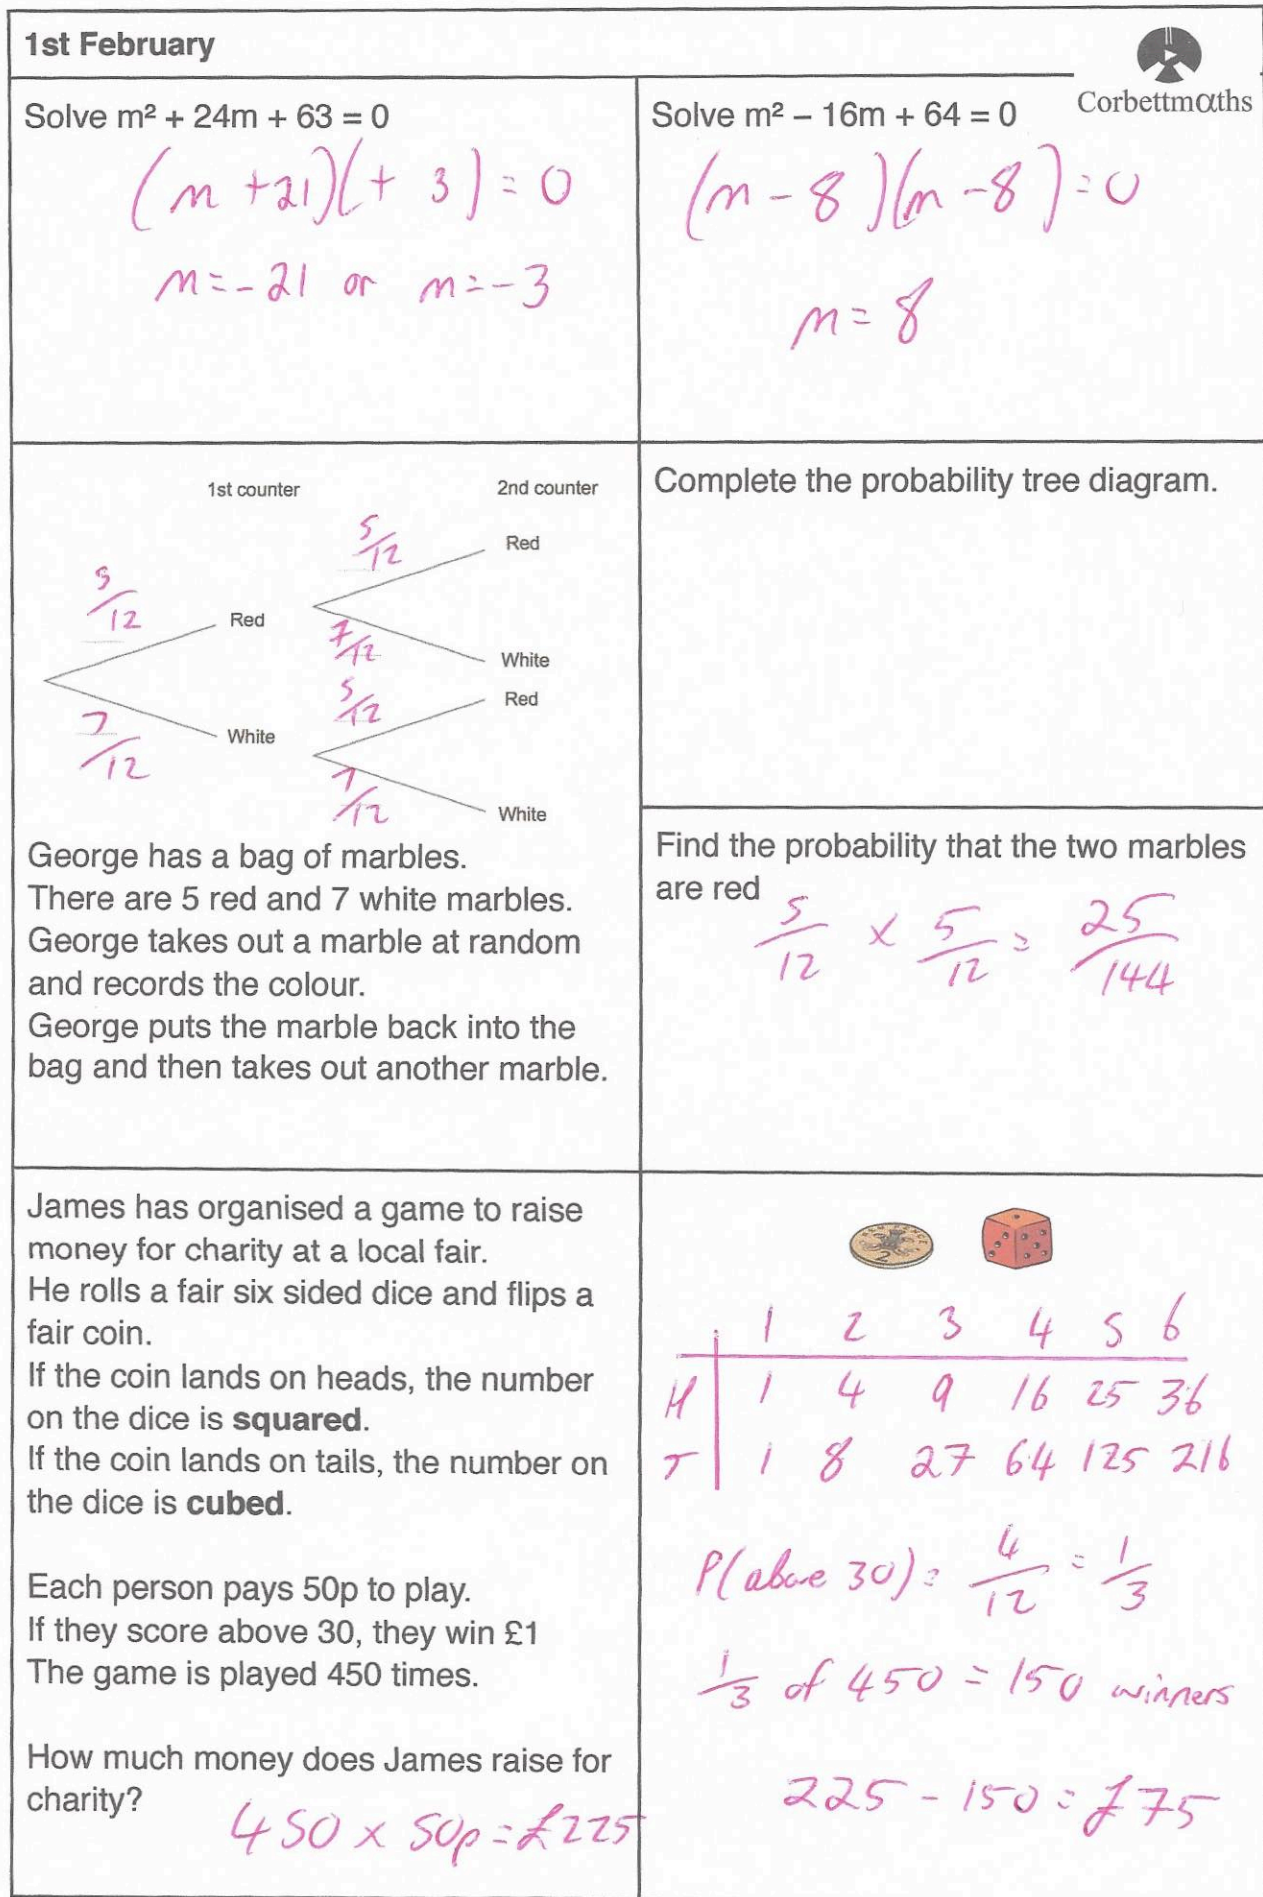 1st February
Corbettmαths
Solve m² + 24m + 63 = 0
(m +21)(+ 3) = 0
m = -21 or m = -3
Solve m² – 16m + 64 = 0
(m - 8)(m - 8) = 0
m = 8
1st counter 2nd counter
5/12 Red
5/12 Red
7/12 White
5/12 Red
7/12 White
7/12 White
George has a bag of marbles.
There are 5 red and 7 white marbles.
George takes out a marble at random
and records the colour.
George puts the marble back into the
bag and then takes out another marble.
Complete the probability tree diagram.
Find the probability that the two marbles
are red
5/12 × 5/12 = 25/144
James has organised a game to raise
money for charity at a local fair.
He rolls a fair six sided dice and flips a
fair coin.
If the coin lands on heads, the number
on the dice is squared.
If the coin lands on tails, the number on
the dice is cubed.
Each person pays 50p to play.
If they score above 30, they win £1
The game is played 450 times.
How much money does James raise for
charity?
450 × 50p = £225
2
1 2 3 4 5 6
H 1 4 9 16 25 36
T 1 8 27 64 125 216
P(above 30) = 4/12 = 1/3
1/3 of 450 = 150 winners
225 - 150 = £75